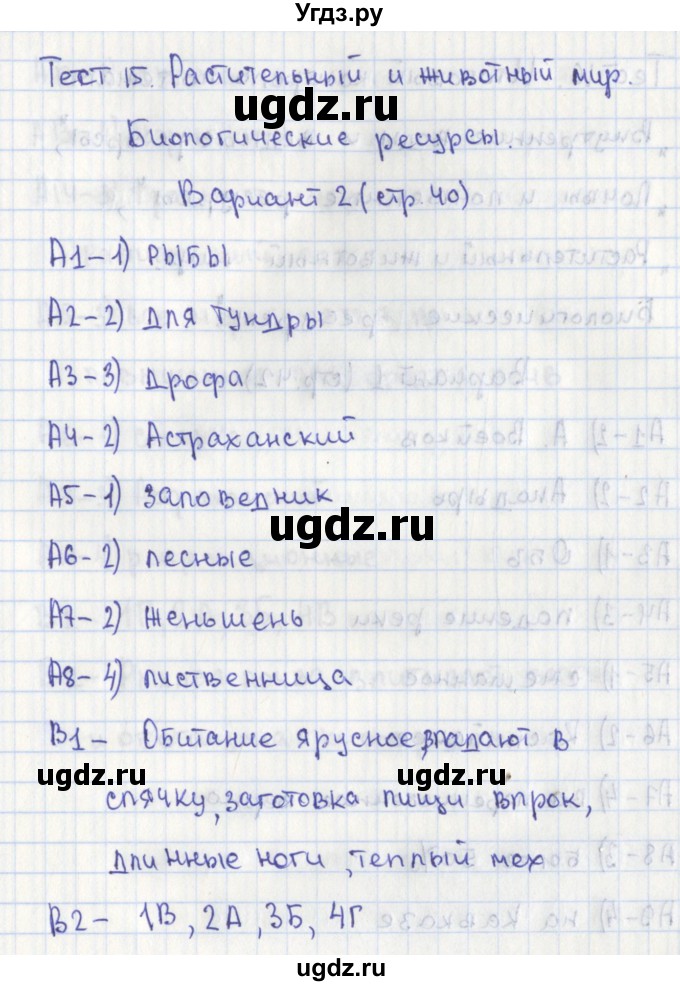 Угдз.ру
Тест 15. Растительный и животный мир.
ugdz.ru
Биологические ресурсы.
Вариант 2 (стр. 40)
А1-1) РЫБЫ
А2-2) для тундры
А3-3) Дрофа
А4-2) Астраханский
А5-1) заповедник
ugdz.ru
А6-2) лесные
А7-2) Женьшень
А8-4) лиственница
В1- Обитание ярусное, впадают в
ugdz.ru ugdz.ru
спячку, заготовка пищи впрок,
длинные ноги, теплый мех
В2- 1В, 2А, 3Б, 4Г
ugdz.ru